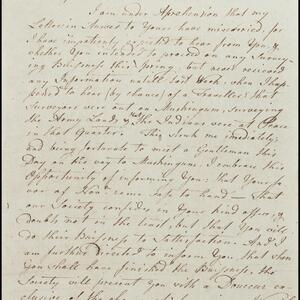 I am under Aprehension that my
Letters in Answer to Yours have miscarried, for
I have impatiently expected to hear from You,
whether You intended to proceed on any Survey-
ing Buisiness this Spring, but never received
any Information untill last Week, when I hap-
pened to hear (by chance) of a Traveller, that
Surveyors were out on Muskingum, Surveying
the Army Lands, & that the Indians were at Peace
in that Quarter. This struck me immediately,
and being fortunate to meet a Gentleman this
Day on the way to Muskingum, I embrace this
Opportunity of informing You; that Your
of came safe to hand — that
our Society confides in Your kind offer, &
doubts not in the least, but that You will
do their Buisiness to Satisfaction. And I
am further directed to inform You, that when
You shall have finished the Buisiness, the
Society will present You with a Douceur
of the